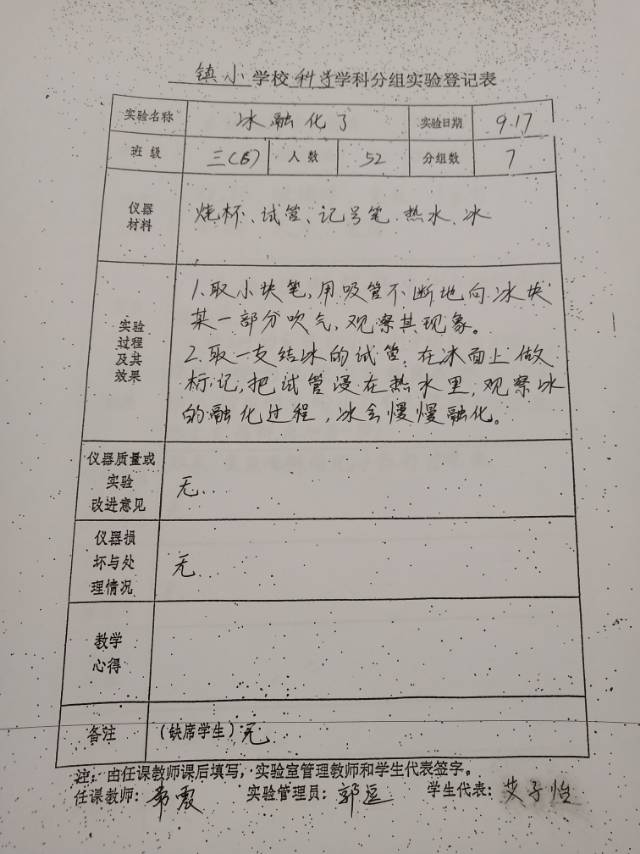 镇小学校科学学科分组实验登记表
实验名称 冰融化了 实验日期 9.17
班级 三(6) 人数 52 分组数 7
仪器材料 烧杯、试管、记号笔.热水.冰
实验过程及其效果
1.取小块笔,用吸管不断地向冰块
某一部分吹气,观察其现象。
2.取一支结冰的试管.在冰面上做
标记,把试管浸在热水里,观察冰
的融化过程,冰会慢慢融化。
仪器质量或实验改进意见 无
仪器损坏与处理情况 无
教学心得
备注 (缺席学生)无
注:由任课教师课后填写,实验室管理教师和学生代表签字。
任课教师: 实验管理员:郭 学生代表:艾子怡